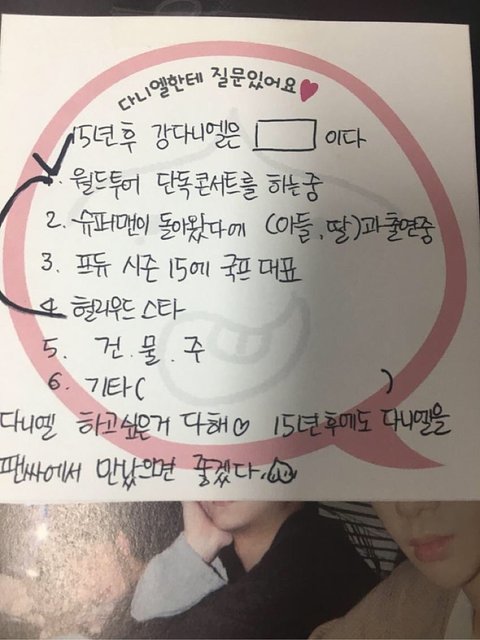 다니엘한테 질문있어요♥
15년후 강다니엘은 □ 이다
1. 월드투어 단독콘서트를 하는중
2. 슈퍼맨이 돌아왔다에 (아들, 딸)과출연중
3. 프듀 시즌 15에 국프 대표
4. 헐리우드 스타
5. 건.물.주
6. 기타( )
다니엘 하고싶은거 다해♡ 15년후에도 다니엘을
팬싸에서 만났으면 좋겠다.